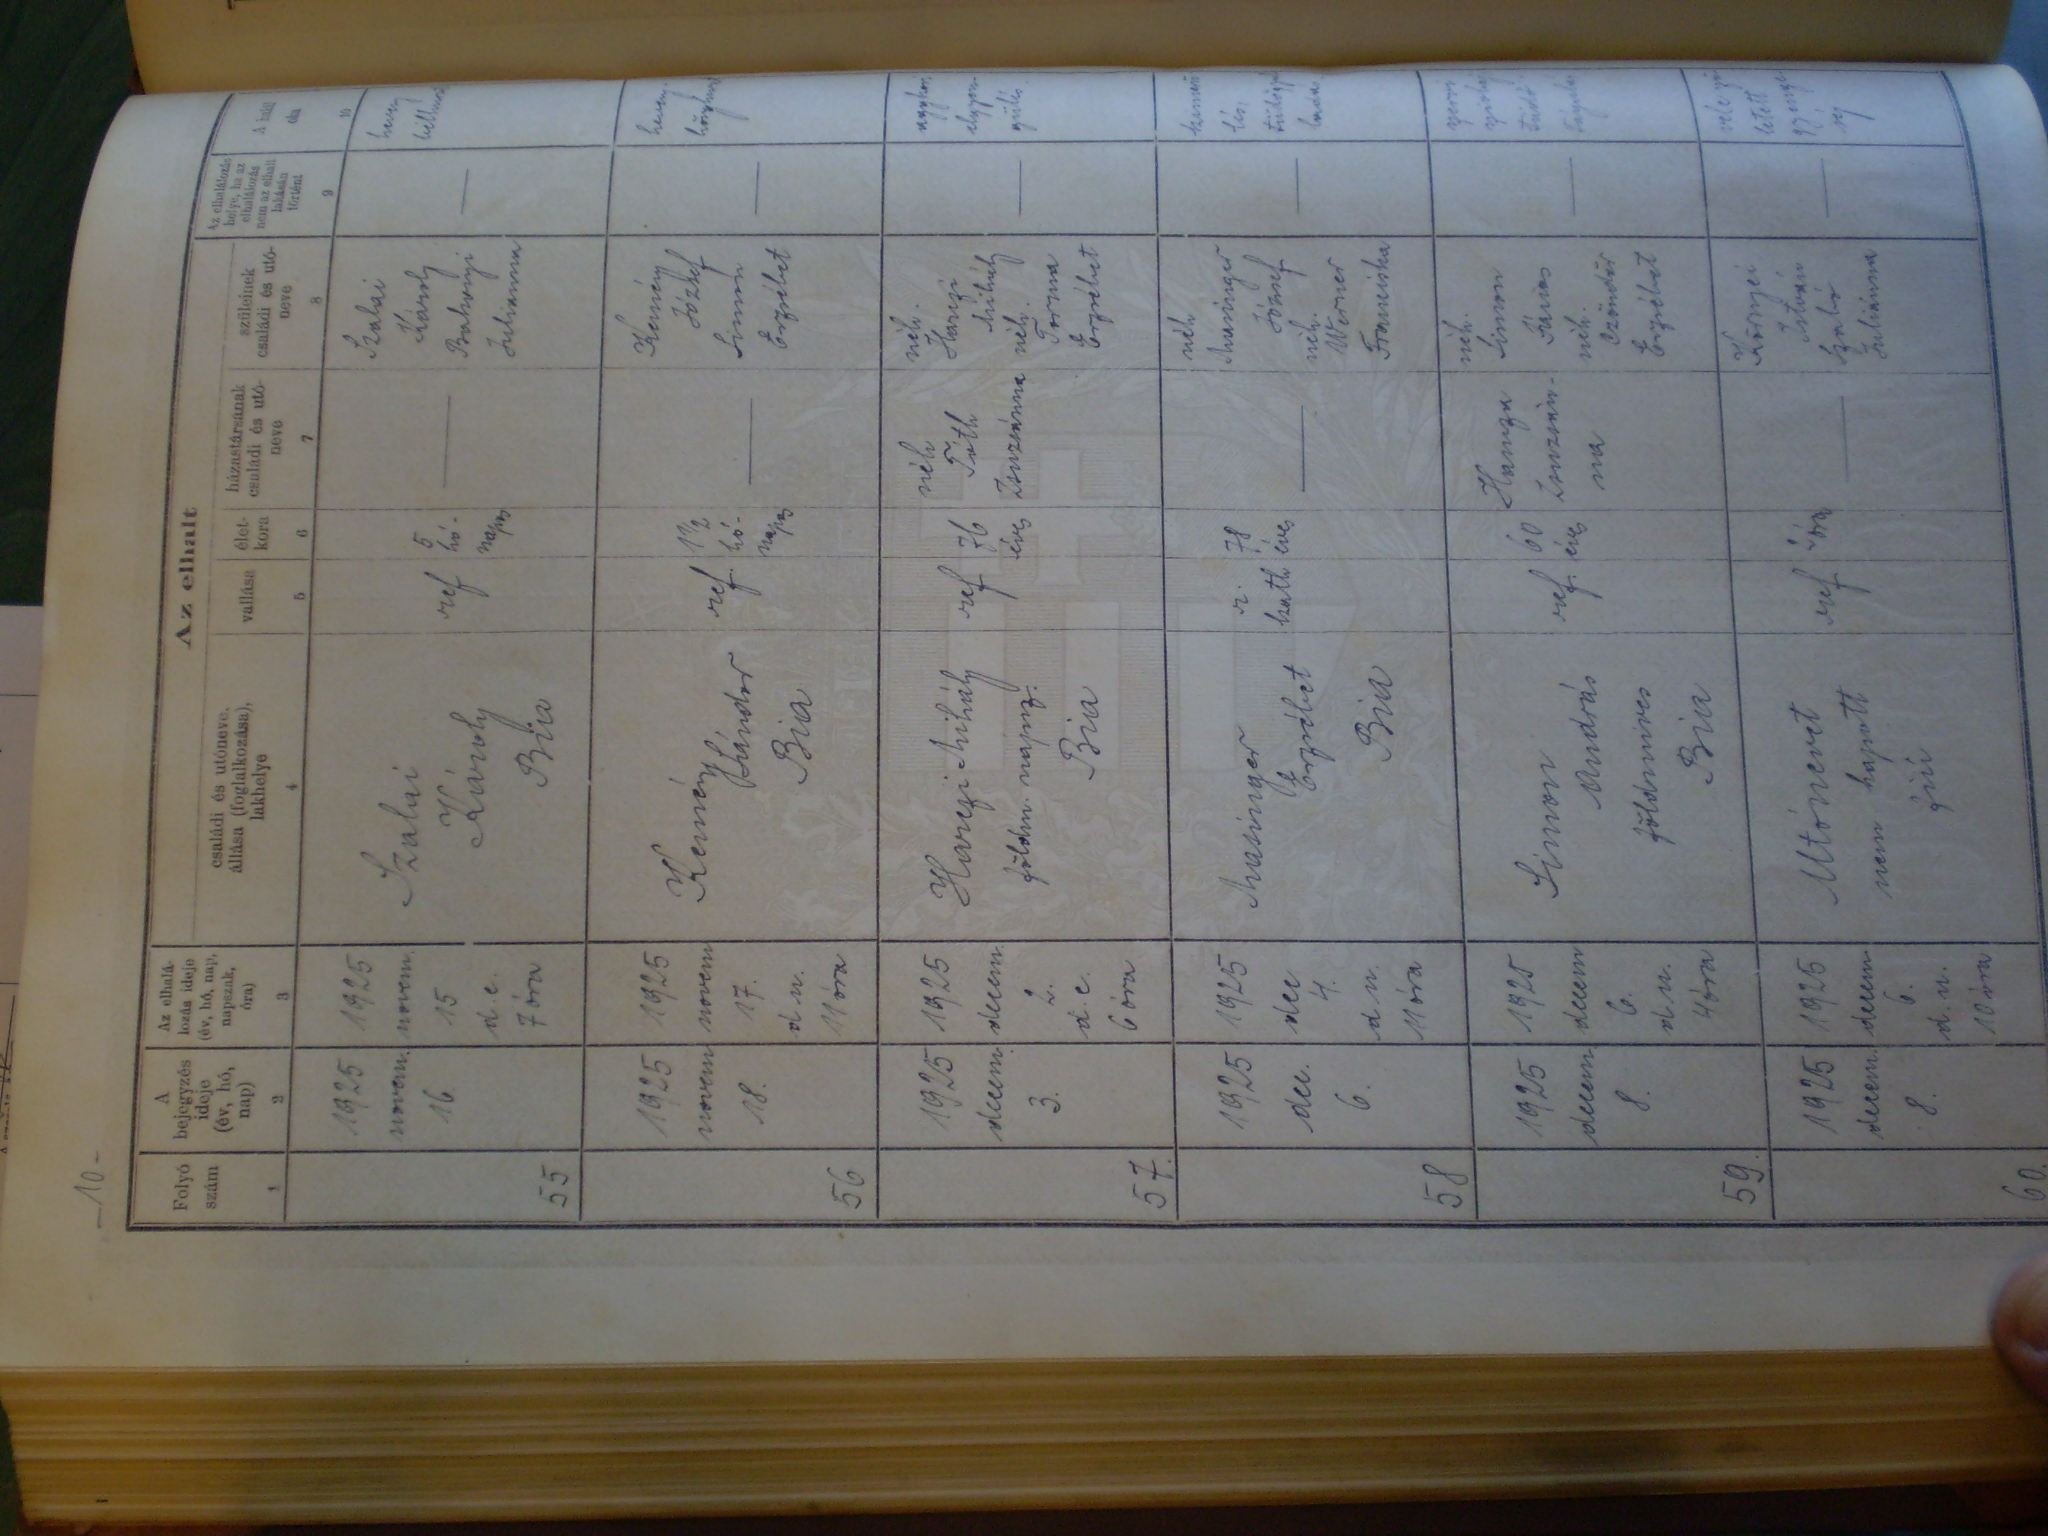 —10—
Az elhalt
Folyó
szám
A
bejegyzés
ideje
(év, hó,
nap)
Az elhalá-
lozás ideje
(év, hó, nap,
napszak,
óra)
családi és utóneve,
állása (foglalkozása),
lakhelye
vallása
élet-
kora
házastársának
családi és utó-
neve
szüleinek
családi és utó-
neve
Az elhalálozás
helye, ha az
elhalálozás
nem az elhalt
lakásán
történt
A halál
oka
1
2
3
4
5
6
7
8
9
10
55
1925
novem.
16.
1925
novem.
15
d. e.
7 óra
Szalai
Károly
Bia
ref
5
hó-
napos
—
Szalai
Károly
Julianna
—
56
1925
novem
18.
1925
novem
17.
d. u.
11 óra
Kemény
Sándor
Bia
ref.
1 1/2
hó-
napos
—
Kemény
József
Simon
Erzsébet
—
57.
1925
decem.
3.
1925
decem.
2.
d. e.
6 óra
Mihály
földm. napsz.
Bia
ref
76
éves
néh
Tóth
Zsuzsánna
néh.
Mihály
néh.
Torma
Erzsébet
—
58
1925
dec.
6.
1925
dec
4.
d. u.
11 óra
Masinger
Erzsébet
Bia
r.
kath
78
éves
—
néh
Masinger
József
néh.
Werner
Franciska
—
59.
1925
decem.
8.
1925
decem
6.
d. u.
4 óra
Simon
András
földmives
Bia
ref.
60
éves
Hamza
Zsuzsán-
na
néh.
Simon
János
néh.
Czöndör
Erzsébet
—
60.
1925
decem.
8.
1925
decem.
6.
d. u.
10 óra
Utónevet
nem kapott
fiú
ref
óra
—
Környei
István
Szabó
Juliánna
—